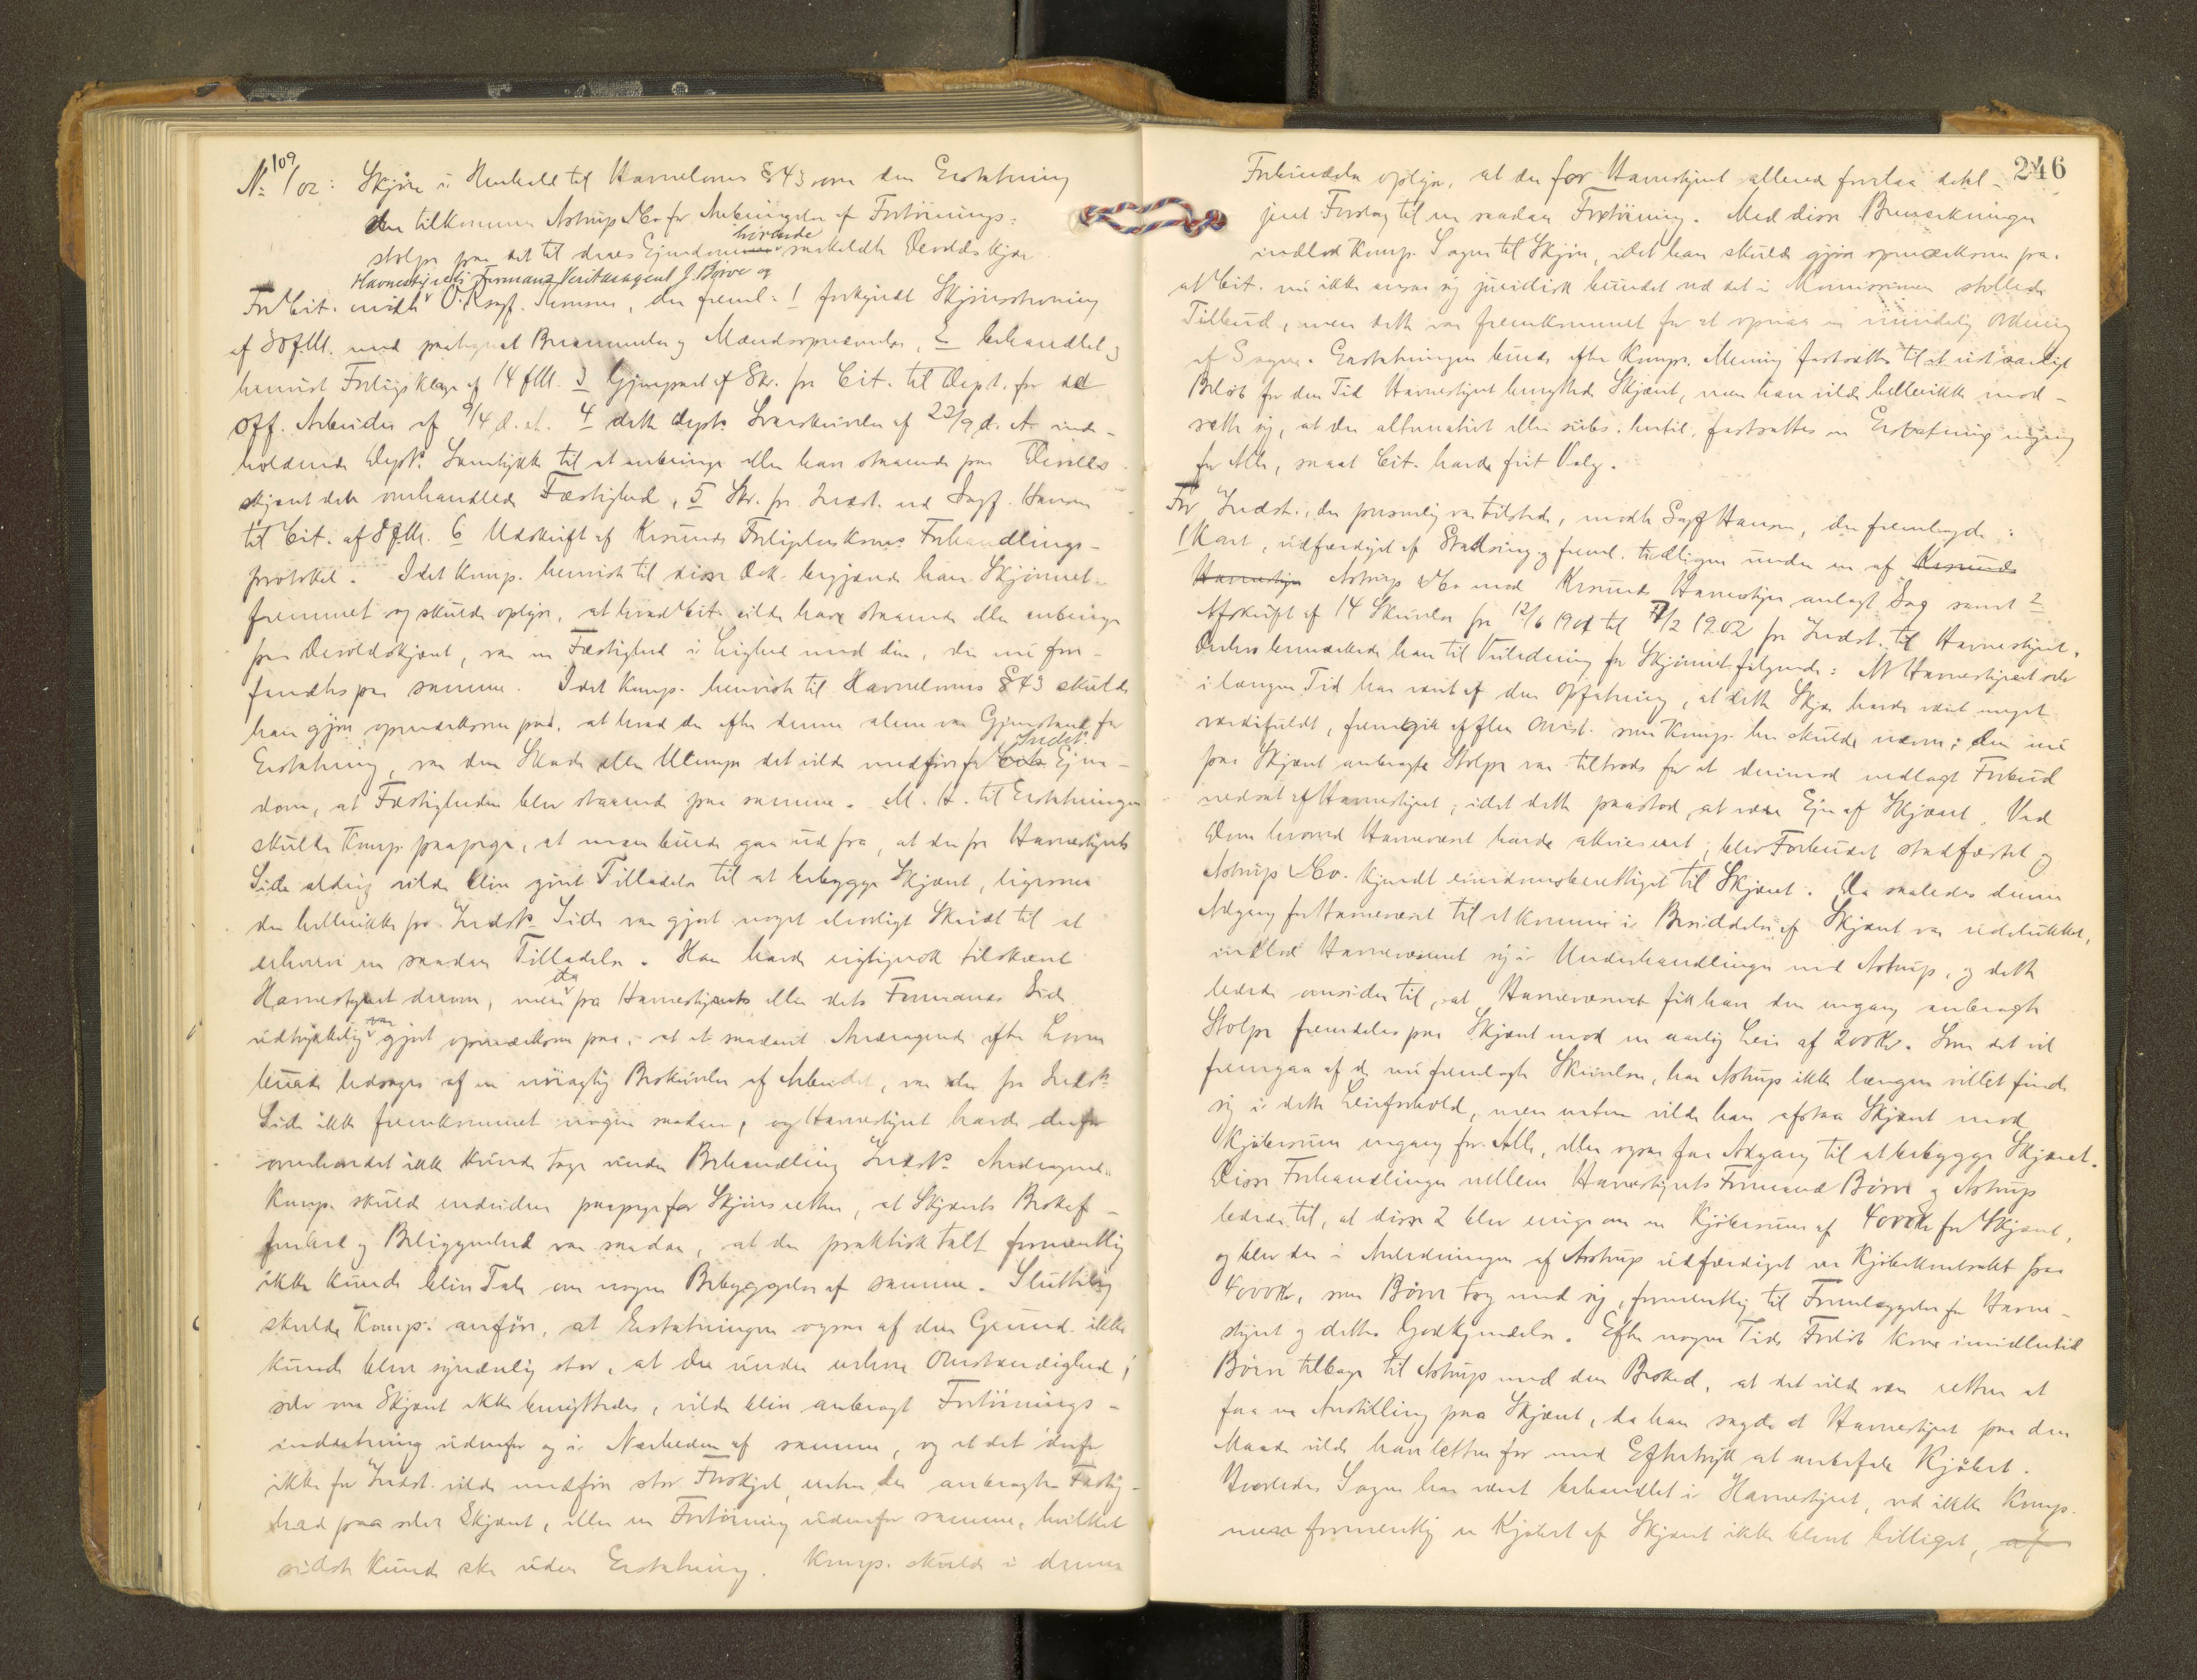 No 109/02: Skjøn i Henhold til Havnelovens § 43 om den Erstatning
der tilkommer Astrup & Co for Anbringelse af Fortøinings-
stolpe paa det til deres Ejendom hørende saakaldte Devoldskjær
Havnestyrets Formand Veritasagent J. Børve og
For Cit. mødte O.R.sagf. , der freml. 1 forkyndt Skjønsstevning
af 30 f.M. med paategnet Berammelse og Mandsopnævnelse, 2 behandlet og
henvist Forligsklage af 14 f.M. 3 Gjenpart af Skr. fra Cit. til Dept. for de
off. Arbeider af 9/4 d. A. 4 dette Depts. Svarskrivelse af 22/9 d. A. inde-
holdende Depts. Samtykke til at anbringe eller have staaende paa Devolds-
skjæret dette omhandlede Fæstighed, 5 Skr. fra Indst. ved Sagf. Hansen
til Cit. af 8 f.M. 6 Udskrift af Krsunds Forligelseskomms. Forhandlings-
protokol. Idet Komp. henviste til disse Dok. begjærede han Skjønnet
fremmet og skulde oplyse, at hvad Cit. vilde have staaende eller anbringe
paa Devoldskjæret, var en Fæstighed i Lighed med den, der nu fore-
fandtes paa samme. Idet Komp. henviste til Havnelovens § 43 skulde
han gjøre opmærksom paa, at hvad der efter denne alene var Gjenstand for
Erstatning, var den Skade eller Ulempe det vilde medføre for Indst. Ejen-
dom, at Fæstigheden blev staaende paa samme. M. H. t. Erstatningen
skulde Komp. paapege, at man burde gaa ud fra, at der fra Havnestyrets
Side aldrig vilde blive givet Tilladelse til at bebygge Skjæret, ligesom
der hellerikke fra Indsts. Side var gjort noget alvorligt Skridt til at
erhverve en saadan Tilladelse. Han havde rigtignok tilskrevet
Havnestyret derom, men da fra Havnestyrets eller dets Formands Side
udtrykkelig var gjort opmærksom paa, at et saadant Andragende efter Loven
burde ledsages af en nøiagtig Beskrivelse af Arbeidet, var der fra Indsts
Side ikke fremkommet nogen saadan, og Havnestyret havde derfor
overhovedet ikke kunde tage under Behandling Indsts. Andragende.
Komp. skulde endvidere paapege for Skjønsretten, at Skjærets Beskaf-
fenhed og Beliggenhed var saadan, at der praktisk talt formentlig
ikke kunde blive Tale om nogen Bebyggelse af samme. Sluttelig
skulde Komp. anføre, at Erstatningen ogsaa af den Grund ikke
kunde blive synderlig stor, at der under enhver Omstændighed,
selv om Skjæret ikke benyttedes, vilde blive anbragt Fortøinings-
indretning udenfor og i Nærheden af samme, og at det derfor
ikke for Indst. vilde medføre stor Forskjel, enten der anbragtes Fæstig-
hed paa selve Skjæret, eller en Fortøining udenfor samme, hvilket
sidste kunde ske uden Erstatning. Komp. skulde i denne
246
Forbindelse oplyse, at der for Havnestyret allerede forelaa detal-
jeret Forslag til en saadan Fortøining. Med disse Bemærkninger
indlod Komp. Sagen til Skjøn, idet han skulde gjøre opmærksom paa,
at Cit. nu ikke ansaa sig juridisk bundet ved det i Kommissionen stillede
Tilbud, men dette var fremkommet for at opnaa en mindelig Ordning
af Sagen. Erstatningen burde efter Komps. Mening fastsættes til et vist aarligt
Beløb for den Tid Havnestyret benyttede Skjæret, men han vilde hellerikke mod-
sætte sig, at der alternativt eller subs. hertil fastsattes en Erstatning engang
for Alle, saaat Cit. havde frit Valg.
For Indst., der personlig var tilstede, mødte Sagf Hansen, der fremlagde:
1 Kart, udfærdiget af Stadsing. og freml. tidligere under en af Krsunds
Havnestyre Astrup & Co mod Krsunds Havnestyre anlagt Sag samt 2
Afskrift af 14 Skrivelser fra 12/6 1901 til 7/2 1902 fra Indst. til Havnestyret.
Derhos bemærkede han til Veiledning for Skjønnet følgende: At Havnestyret selv
i længere Tid har været af den Opfatning, at dette Skjær havde været meget
værdifuldt, fremgik af flere Omst. som Komp. her skulde nævne; Den nu
paa Skjæret anbragte Stolpe var tiltrods for et derimod nedlagt Forbud
nedsat af Havnestyret, idet dette paastod at være Ejer af Skjæret. Ved
Dom hvorved Havnevæsenet havde akviesceret, blev Forbudet stadfæstet og
Astrup & Co. kjendt eiendomsberettiget til Skjæret. Da saaledes denne
Adgang for Havnevæsenet til at komme i Besiddelse af Skjæret var udelukket,
indlod Havnevæsenet sig i Underhandlinger med Astrup, og dette
ledede omsider til, at Havnevæsenet fik have den engang anbragte
Stolpe fremdeles paa Skjæret mod en aarlig Leie af 200 Kr. Som det vil
fremgaa af de nu fremlagte Skrivelser, har Astrup ikke længere villet finde
sig i dette Leieforhold, men enten vilde han afstaa Skjæret mod
Kjøbesum engang for Alle, eller ogsaa faa Adgang til at bebygge Skjæret.
Disse Forhandlinger mellem Havnestyrets Formand Børve og Astrup
ledede til, at disse 2 blev enige om en Kjøbesum af 4000 Kr for Skjæret,
og blev der i Anledningen af Astrup udfærdiget en Kjøbekontrakt paa
4000 Kr, som Børve tog med sig, formentlig til Fremlæggelse for Havne-
styret og dettes Godkjendelse. Efter nogen Tids Forløb kom imidlertid
Børve tilbage til Astrup med den Besked, at det vilde være rettere at
faa en Anstilling paa Skjæret, da han sagde at Havnestyret paa den
Maade vilde have lettere for med Eftertryk at anbefale Kjøbet.
Hvorledes Sagen har været behandlet i Havnestyret, ved ikke Komp.
men formentlig er Kjøbet af Skjæret ikke blevet billiget, af